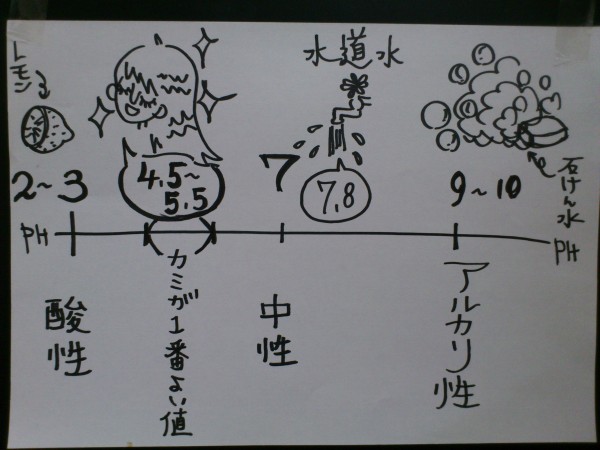 レモン
水道水
石けん水
2~3
4.5~
5.5
7
7.8
9~10
PH
PH
酸性
カミが1番よい値
中性
アルカリ性